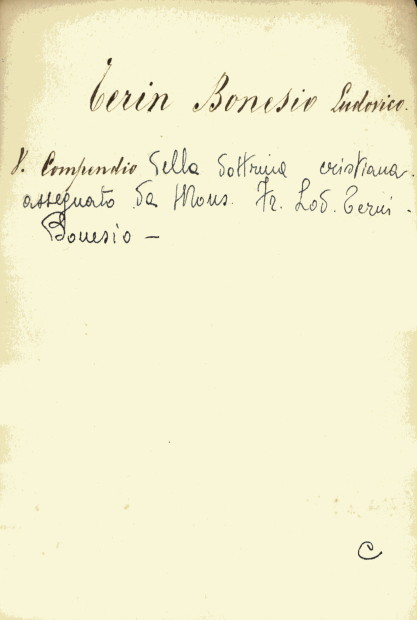 Terin Bonesio Ludovico.
V. Compendio della dottrina cristiana.
assegnato da Mons. Fr. Lod. Terin -
Bonesio -
C